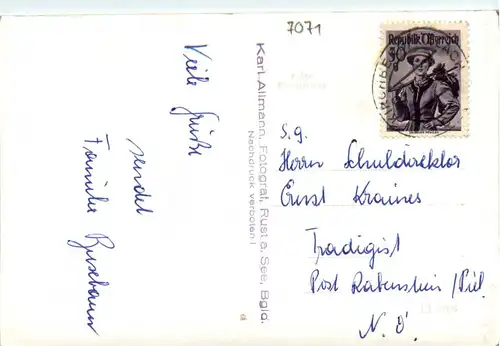 7071
Viele Grüße
sendet
Familie
Karl Allmann, Fotograf, Rust a. See, Bgld.
Nachdruck verboten!
Republik Österreich
S.g.
Herrn Schuldirektor
Ernst Kraines
Tradigist
Post Rabenstein/Piel.
N.Ö.